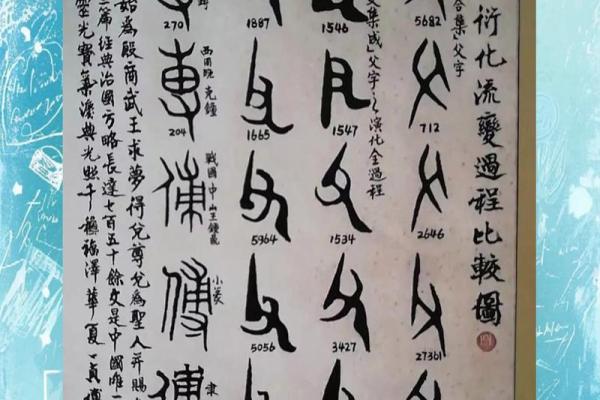 衍化流變過程比較圖
合集」父字
5682
712
2646
27361
文集成」父字之演化全過程
1546
1547
1534
3427
1887
1665
5964
5056
270
西周晚 克鐘
204
戰國 中山王
小篆
隸
始為殷商武王求夢得兌尊兌為聖人并賜
經典治國方略長達七百五十餘文是中國唯一
光寶氣溪與光照千 福澤華夏一